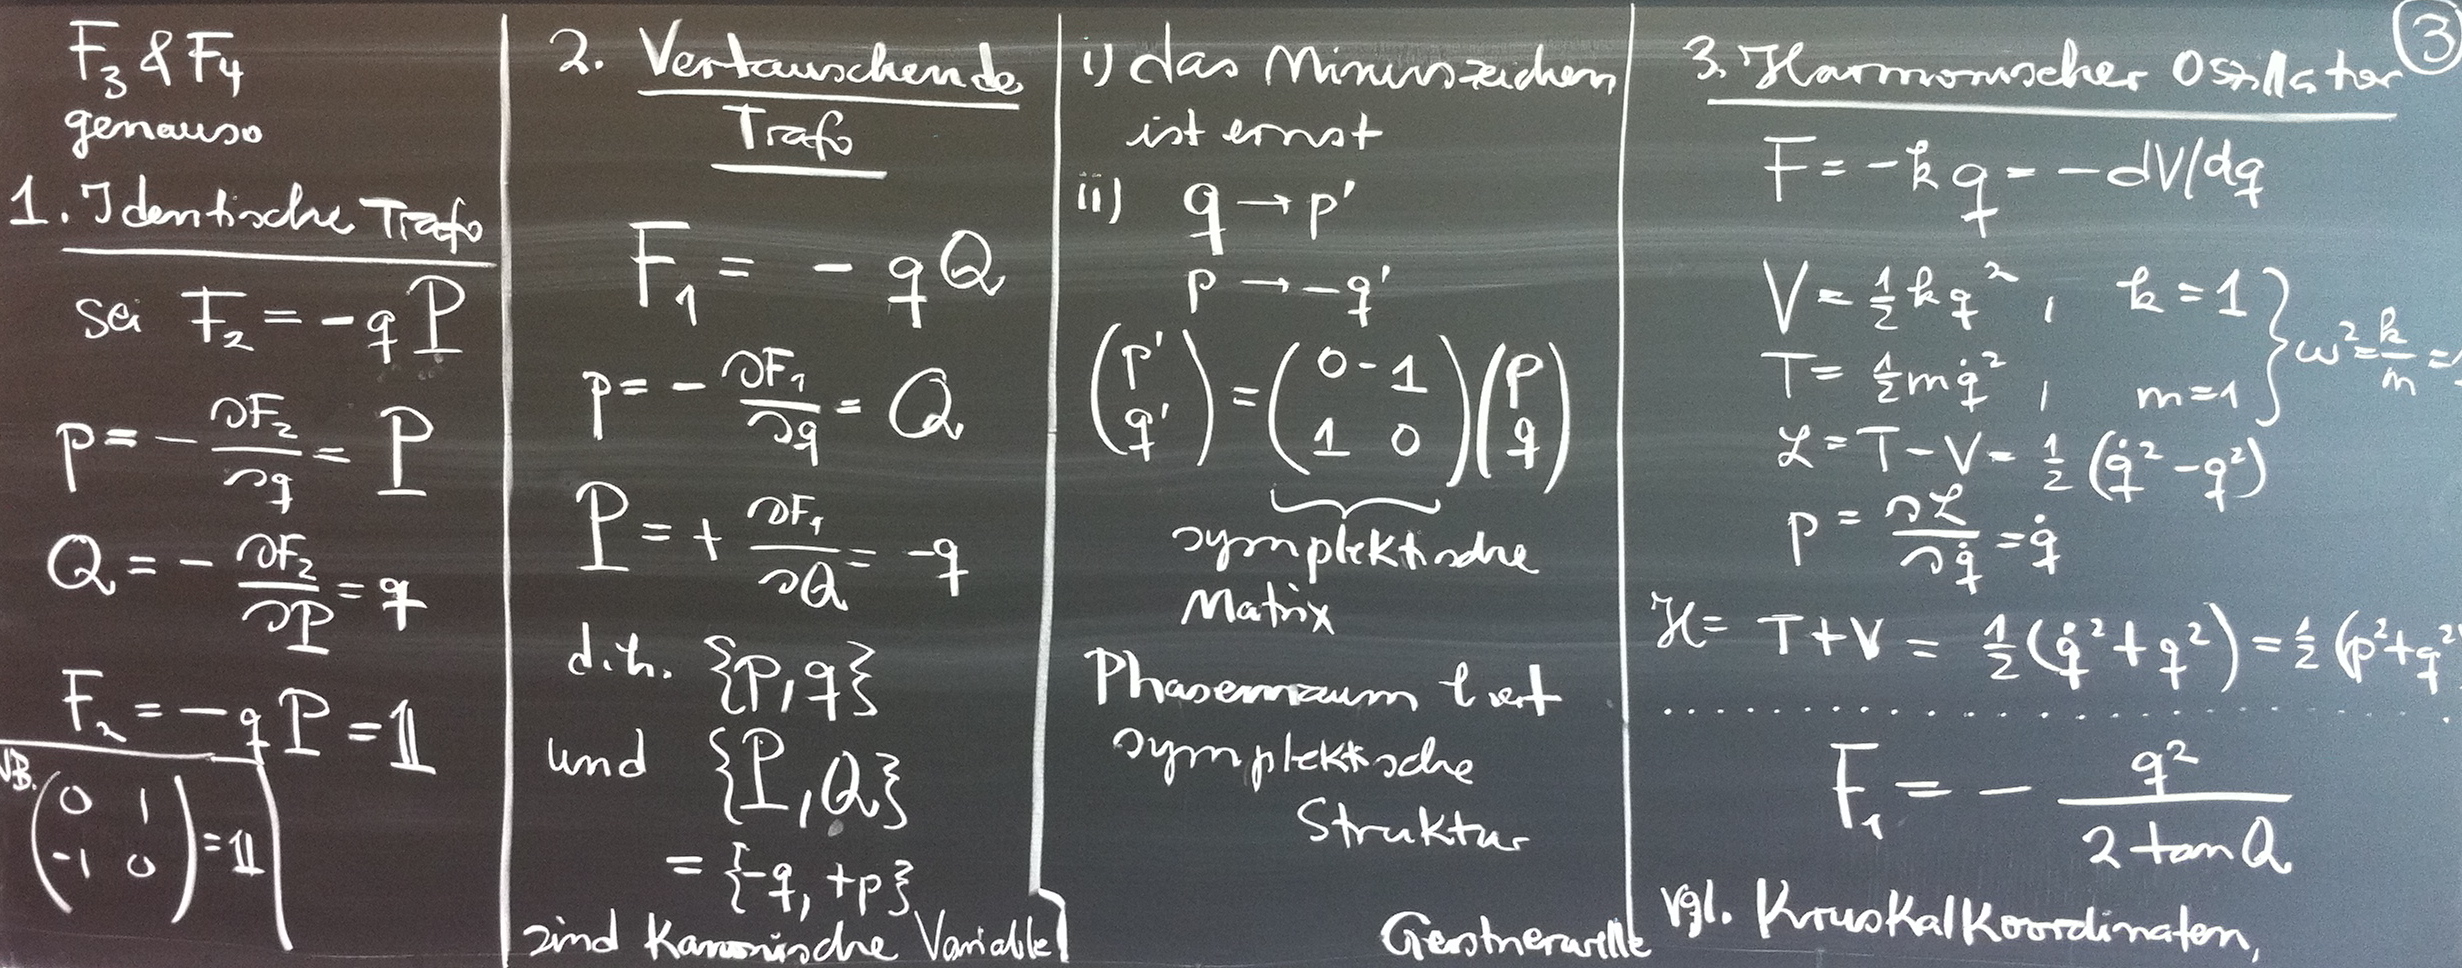 F₃ & F₄
genauso
1. Identische Trafo
sei F₂ = -q P
p = - ∂F₂/∂q = P
Q = - ∂F₂/∂P = q
F₂ = -q P = 𝟙
NB. (0 1
-1 0) = 𝟙
2. Vertauschende
Trafo
F₁ = - q Q
p = - ∂F₁/∂q = Q
P = + ∂F₁/∂Q = -q
d.h. {p, q}
und {P, Q}
= {-q, +p}
sind kanonische Variable
i) das Minuszeichen
ist ernst
ii) q → p'
p → -q'
(p'
q') = (0 -1
1 0) (p
q)
symplektische
Matrix
Phasenraum hat
symplektische
Struktur
3. Harmonischer Oszillator ③
F = -k q = - dV/dq
V = ½ k q², k = 1
T = ½ m q̇², m = 1 } ω² = k/m =
ℒ = T - V = ½ (q̇² - q²)
p = ∂ℒ/∂q̇ = q̇
ℋ = T + V = ½ (q̇² + q²) = ½ (p² + q²
. . . . . . . . . . . . . . . . . . . .
F₁ = - q²/2 tan Q
vgl. Kruskalkoordinaten,
Gerstnerwelle